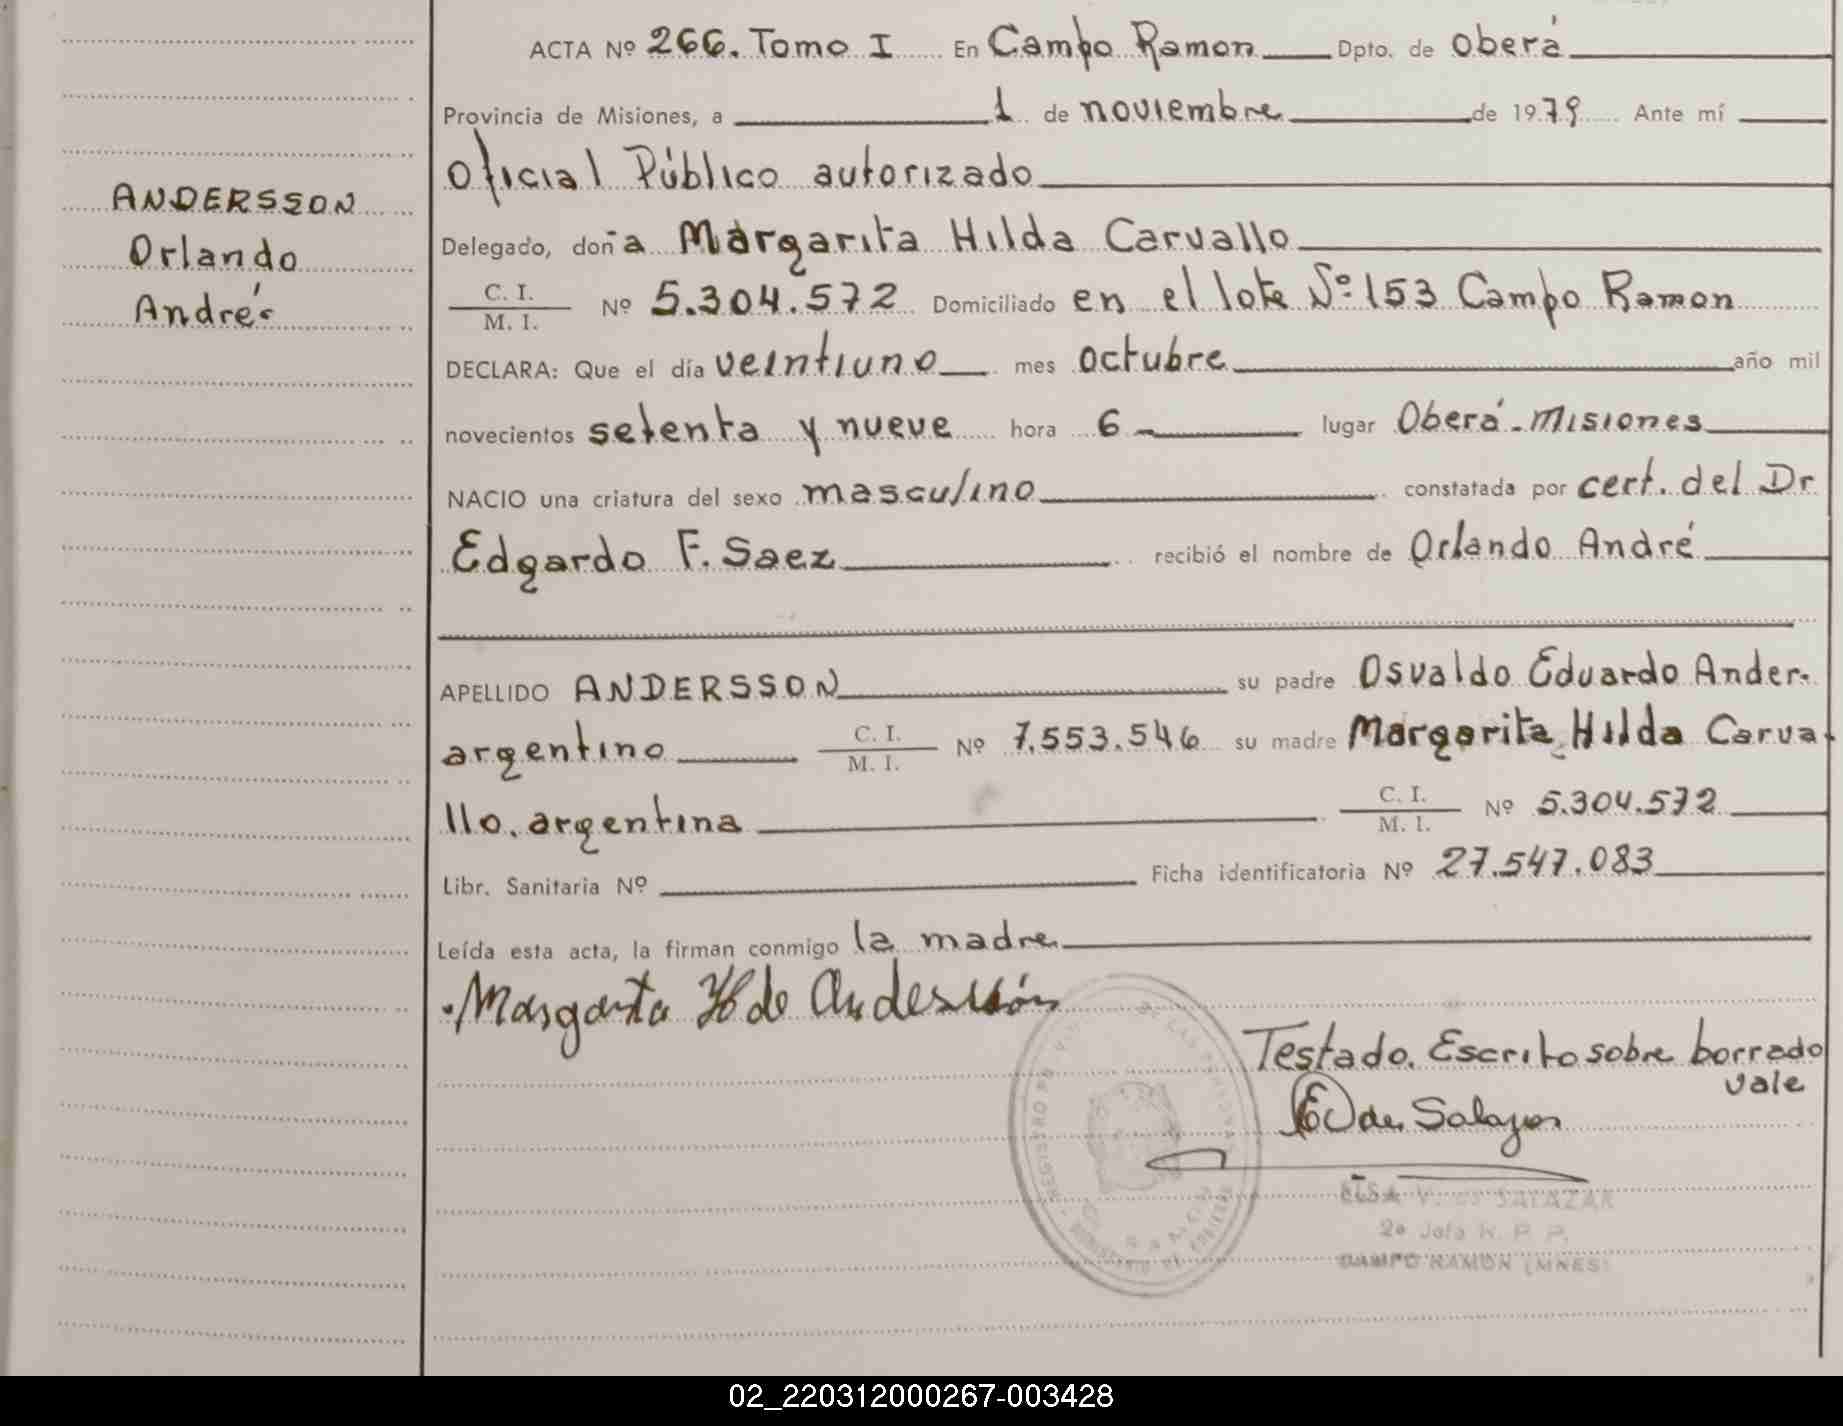 ANDERSSON
Orlando
André
ACTA Nº 266. Tomo I En Campo Ramon Dpto. de Oberá
Provincia de Misiones, a 1 de noviembre de 1979 Ante mí
Oficial Público autorizado
Delegado, doña Margarita Hilda Carvallo
C. I.
M. I. Nº 5.304.572 Domiciliado en el lote Nº 153 Campo Ramon
DECLARA: Que el día veintiuno mes octubre año mil
novecientos setenta y nueve hora 6 lugar Oberá - Misiones
NACIO una criatura del sexo masculino constatada por cert. del Dr
Edgardo F. Saez recibió el nombre de Orlando André
APELLIDO ANDERSSON su padre Osvaldo Eduardo Ander.
argentino C. I. M. I. Nº 7.553.546 su madre Margarita Hilda Carva
llo. argentina C. I. M. I. Nº 5.304.572
Libr. Sanitaria Nº Ficha identificatoria Nº 27.547.083
Leída esta acta, la firman conmigo la madre
Margarita H de Anderssón
Testado. Escrito sobre borrado
vale
de Salazar
ELSA V. de SALAZAR
2º Jefe R. P. P.
CAMPO RAMON (MNES)
REGISTRO DE LAS PERSONAS
MINISTERIO DE GOBIERNO
02_220312000267-003428